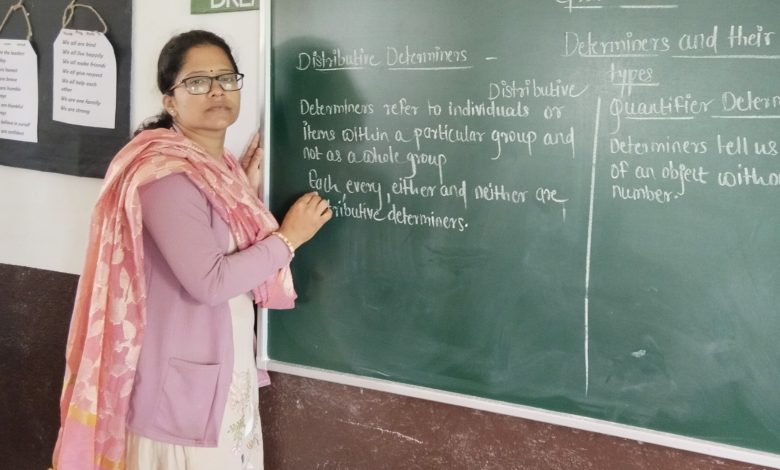 We all are kind
We all live happily
We all make friends
We all give respect
We all help each
other
We are one family
We are strong
Distributive Determiners -
Distributive
Determiners refer to individuals or
items within a particular group and
not as a whole group
Each, every, either and neither are
tributive determiners.
Determiners and their
types
Quantifier Determ
Determiners tell us
of an object withou
number.